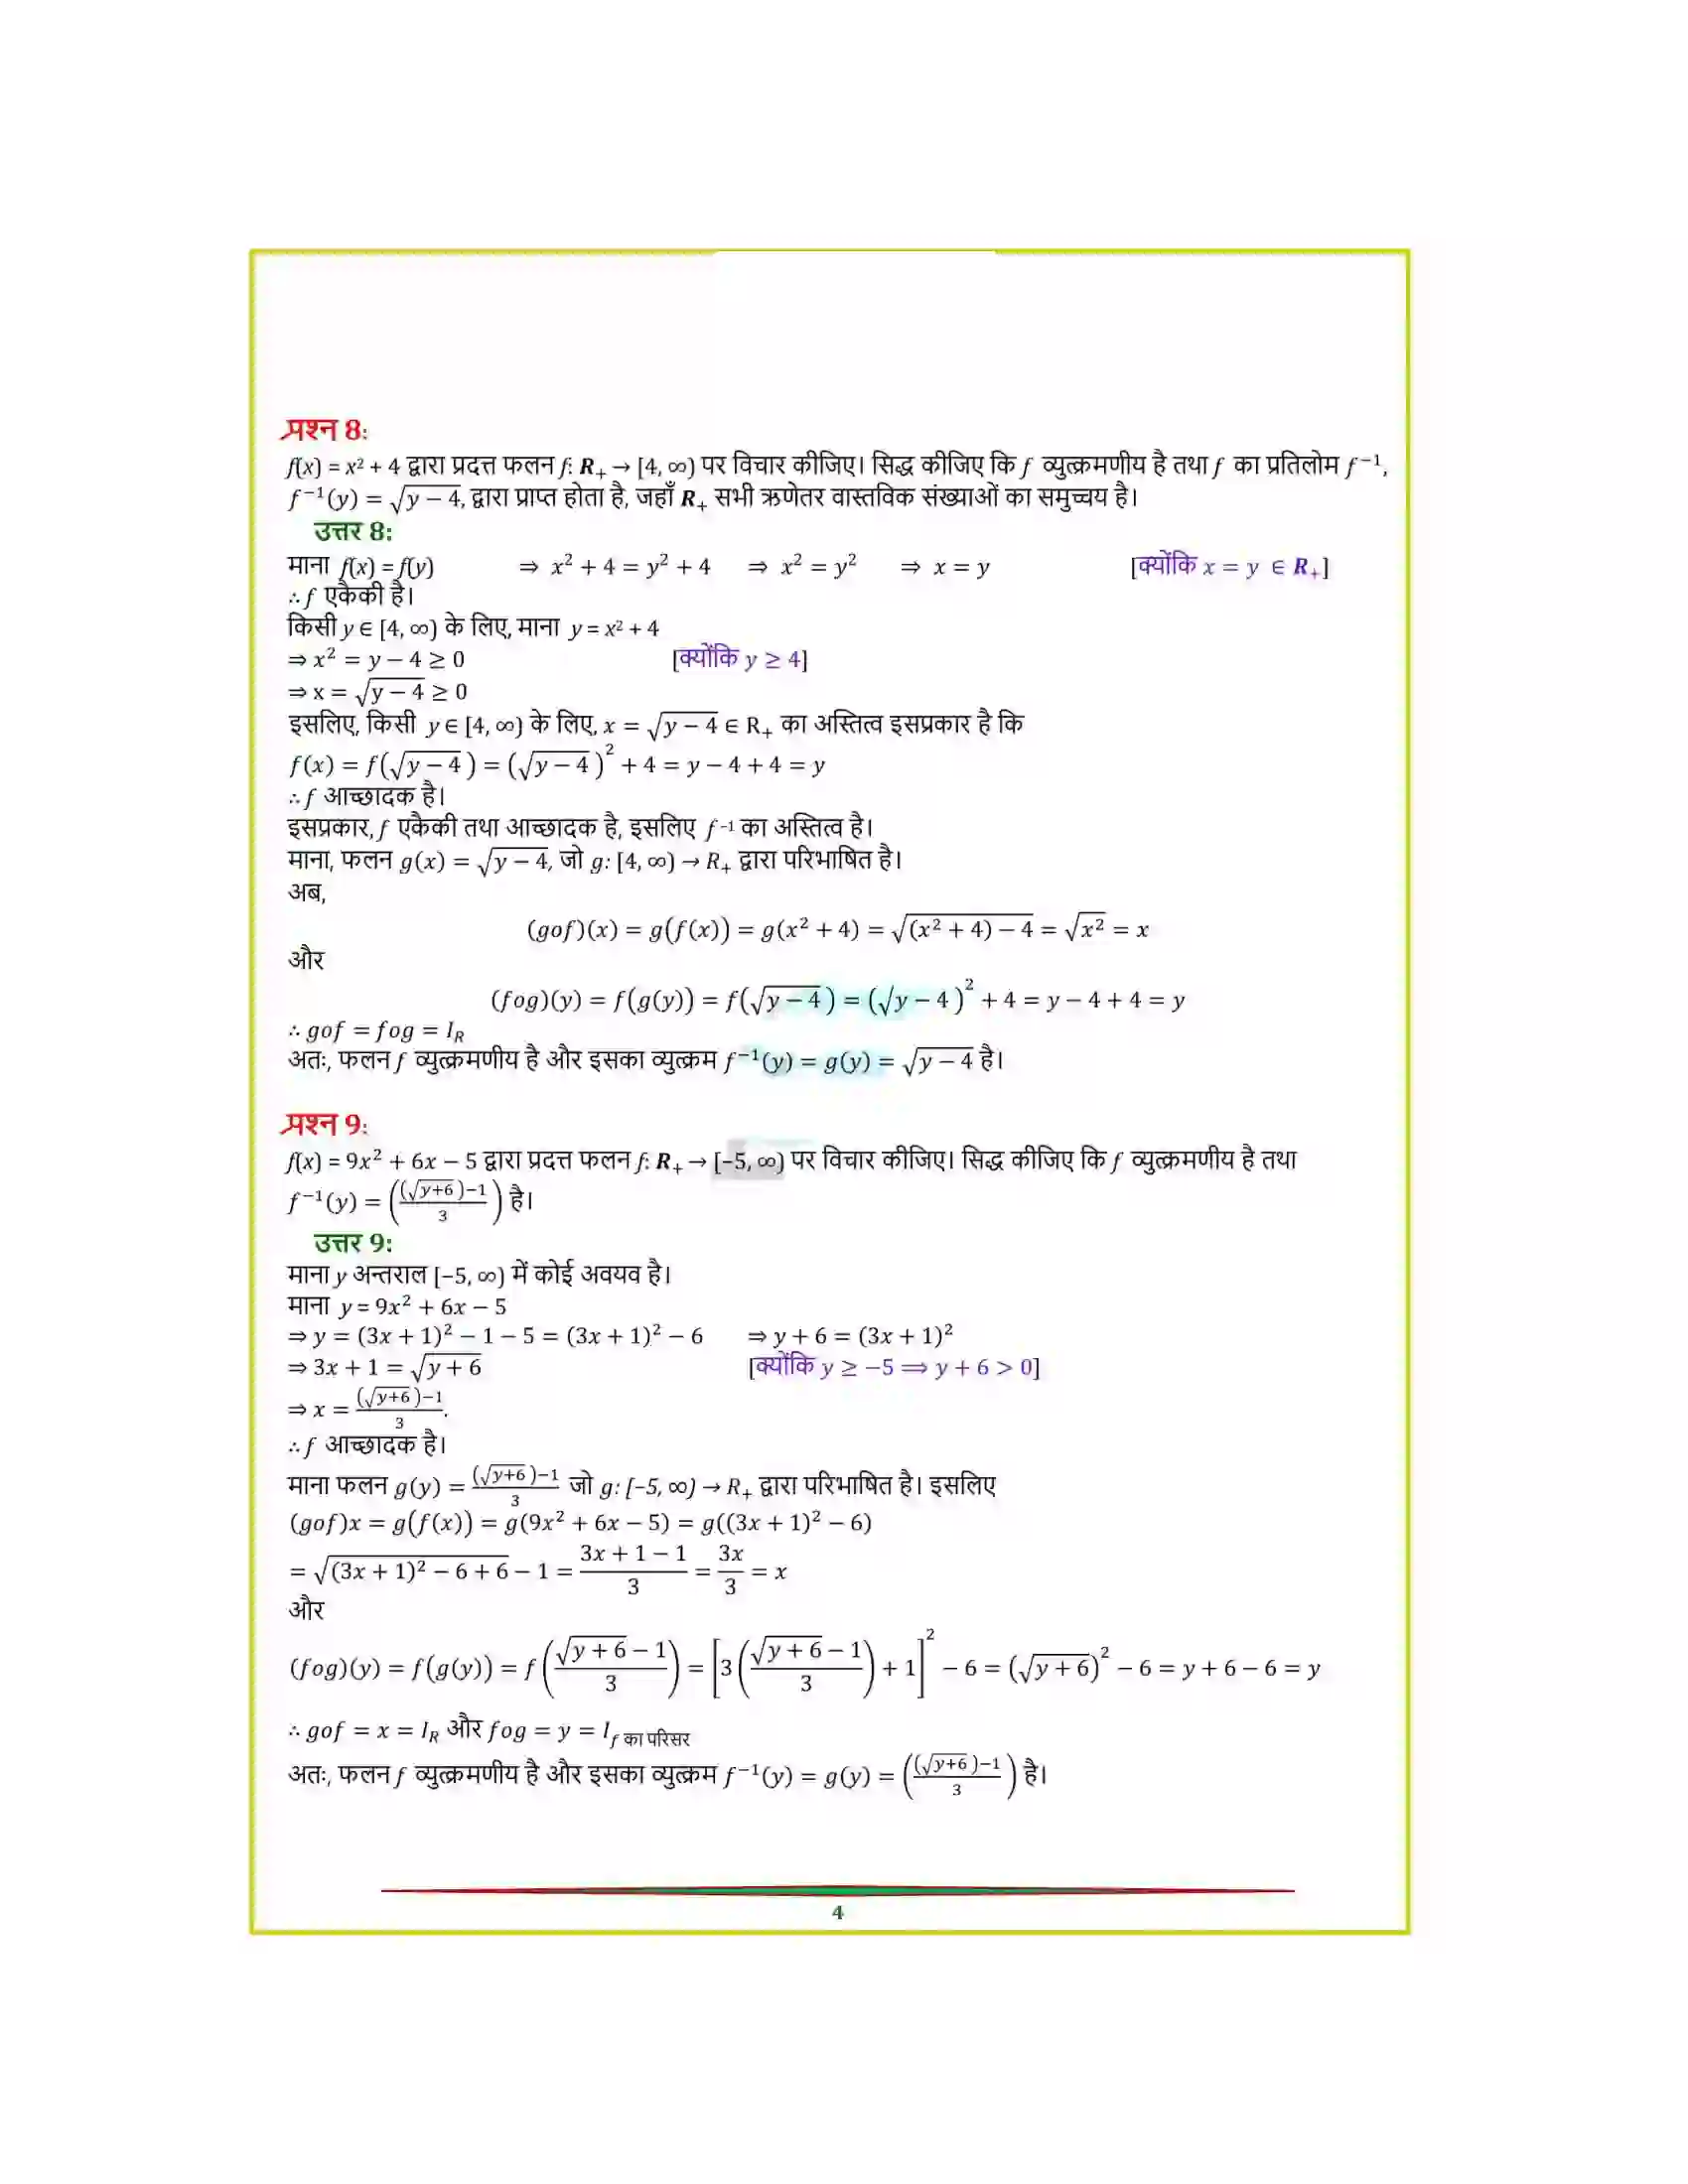 प्रश्न 8:
f(x) = x² + 4 द्वारा प्रदत्त फलन f: R₊ → [4, ∞) पर विचार कीजिए। सिद्ध कीजिए कि f व्युत्क्रमणीय है तथा f का प्रतिलोम f⁻¹,
f⁻¹(y) = √(y − 4), द्वारा प्राप्त होता है, जहाँ R₊ सभी ऋणेतर वास्तविक संख्याओं का समुच्चय है।
उत्तर 8:
माना f(x) = f(y) ⇒ x² + 4 = y² + 4 ⇒ x² = y² ⇒ x = y [क्योंकि x = y ∈ R₊]
∴ f एकैकी है।
किसी y ∈ [4, ∞) के लिए, माना y = x² + 4
⇒ x² = y − 4 ≥ 0 [क्योंकि y ≥ 4]
⇒ x = √(y − 4) ≥ 0
इसलिए, किसी y ∈ [4, ∞) के लिए, x = √(y − 4) ∈ R₊ का अस्तित्व इसप्रकार है कि
f(x) = f(√(y − 4)) = (√(y − 4))² + 4 = y − 4 + 4 = y
∴ f आच्छादक है।
इसप्रकार, f एकैकी तथा आच्छादक है, इसलिए f⁻¹ का अस्तित्व है।
माना, फलन g(x) = √(y − 4), जो g: [4, ∞) → R₊ द्वारा परिभाषित है।
अब,
(gof)(x) = g(f(x)) = g(x² + 4) = √((x² + 4) − 4) = √(x²) = x
और
(fog)(y) = f(g(y)) = f(√(y − 4)) = (√y − 4)² + 4 = y − 4 + 4 = y
∴ gof = fog = I_R
अतः, फलन f व्युत्क्रमणीय है और इसका व्युत्क्रम f⁻¹(y) = g(y) = √(y − 4) है।
प्रश्न 9:
f(x) = 9x² + 6x − 5 द्वारा प्रदत्त फलन f: R₊ → [−5, ∞) पर विचार कीजिए। सिद्ध कीजिए कि f व्युत्क्रमणीय है तथा
f⁻¹(y) = (((√(y+6))−1)/3) है।
उत्तर 9:
माना y अन्तराल [−5, ∞) में कोई अवयव है।
माना y = 9x² + 6x − 5
⇒ y = (3x + 1)² − 1 − 5 = (3x + 1)² − 6 ⇒ y + 6 = (3x + 1)²
⇒ 3x + 1 = √(y + 6) [क्योंकि y ≥ −5 ⟹ y + 6 > 0]
⇒ x = ((√(y+6))−1)/3.
∴ f आच्छादक है।
माना फलन g(y) = ((√(y+6))−1)/3 जो g: [−5, ∞) → R₊ द्वारा परिभाषित है। इसलिए
(gof)x = g(f(x)) = g(9x² + 6x − 5) = g((3x + 1)² − 6)
= √((3x + 1)² − 6 + 6) − 1 = (3x + 1 − 1)/3 = 3x/3 = x
और
(fog)(y) = f(g(y)) = f((√(y + 6) − 1)/3) = [3((√(y + 6) − 1)/3) + 1]² − 6 = (√(y + 6))² − 6 = y + 6 − 6 = y
∴ gof = x = I_R और fog = y = I_f का परिसर
अतः, फलन f व्युत्क्रमणीय है और इसका व्युत्क्रम f⁻¹(y) = g(y) = (((√(y+6))−1)/3) है।
4